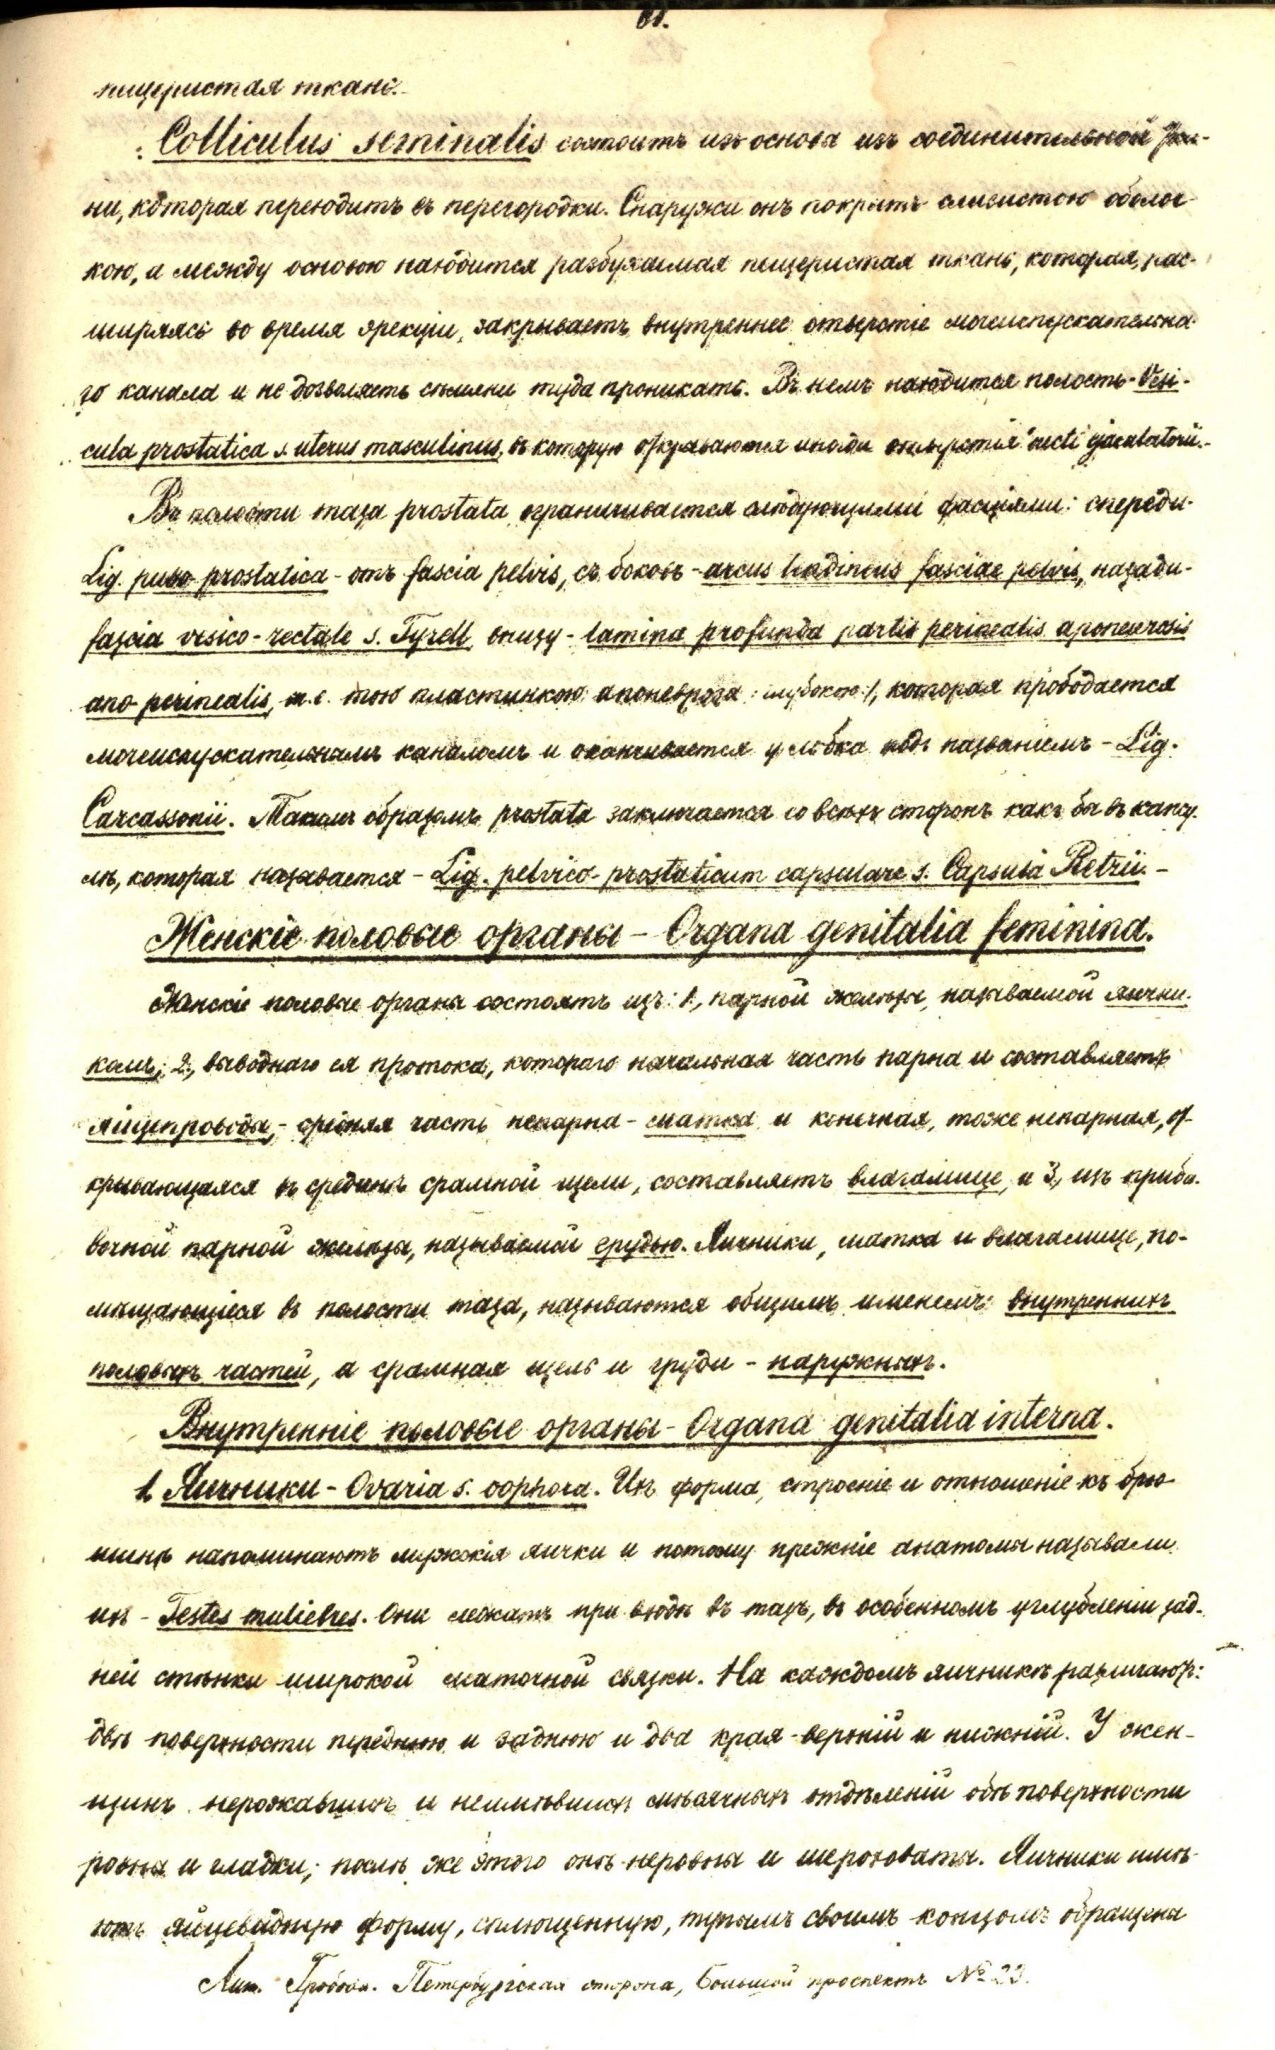 81.
пещеристая ткань.-
Colliculus seminalis состоитъ изъ основы изъ соединительной тка-
ни, которая переходитъ въ перегородки. Снаружи онъ покрытъ слизистою оболоч-
кою, а между основою находится разбухаемая пещеристая ткань, которая, рас-
ширяясь во время эрекціи, закрываетъ внутреннее отверстіе мочеиспускательна-
го канала и не дозволяетъ сѣмяни туда проникать. Въ немъ находится полость - Vesi-
cula prostatica s. uterus masculinus, въ которую открываются иногда отверстія ducti ejaculatorii.-
Въ полости таза prostata ограничивается слѣдующими фасціями: спереди-
Lig. pubo prostatica - отъ fascia pelvis, съ боковъ - arcus tendineus fasciae pelvis, назади-
fascia vesico-rectale s. Tyrell, внизу - lamina profunda partis perinealis aponeurosis
ano-perinealis, т.е. тою пластинкою апоневроза /:глубокою:/, которая прободается
мочеиспускательнымъ каналомъ и оканчивается у лобка подъ названіемъ - Lig.
Carcassonii. Такимъ образомъ prostata заключается со всѣхъ сторонъ какъ бы въ капсу-
лѣ, которая называется - Lig. pelvico-prostaticum capsulare s. Capsula Retzii.-
Женскіе половые органы - Organa genitalia feminina.
Женскіе половые органы состоятъ изъ: 1, парной железы, называемой яични-
комъ; 2, выводнаго ея протока, котораго начальная часть парна и составляетъ
яйцепроводы, - средняя часть непарна - матка и конечная, тоже непарная, от-
крывающаяся въ срединѣ срамной щели, составляетъ влагалище, и 3, изъ приба-
вочной парной железы, называемой грудью. Яичники, матка и влагалище, по-
мѣщающіеся въ полости таза, называются общимъ именемъ: внутреннихъ
половыхъ частей, а срамная щель и груди - наружныхъ.
Внутренніе половые органы - Organa genitalia interna.
1. Яичники - Ovaria s. oophora. Ихъ форма, строеніе и отношеніе къ брю-
шинѣ напоминаютъ мужскія яички и потому прежніе анатомы называли
ихъ - Testes muliebres. Они лежатъ при входѣ въ тазъ, въ особенномъ углубленіи зад-
ней стѣнки широкой маточной связки. На каждомъ яичникѣ различаютъ:
двѣ поверхности переднюю и заднюю и два края - верхній и нижній. У жен-
щинъ нерожавшихъ и неимѣвшихъ мѣсячныхъ отдѣленій обѣ поверхности
ровны и гладки; послѣ же этого онѣ неровны и шероховаты. Яичники имѣ-
ютъ яйцевидную форму, сплющенную, тупымъ своимъ концомъ обращены
Лит. Гробова. Петербургская сторона, Большой проспектъ № 23.